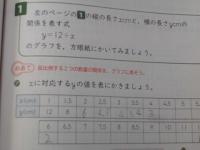 1
左のページの1の縦の長さxcmと、横の長さycmの
関係を表す式
y=12÷x
のグラフを、方眼紙にかいてみましょう。
めあて 反比例する2つの数量の関係を、グラフに表そう。
xに対応するyの値を表にかきましょう。
x(cm) 1 1.5 2 2.5 3 3.5 4 4.5 5
y(cm) 12 8 6 4 3
6 6.5 7 7.5 8 8.5 9 10 11
2